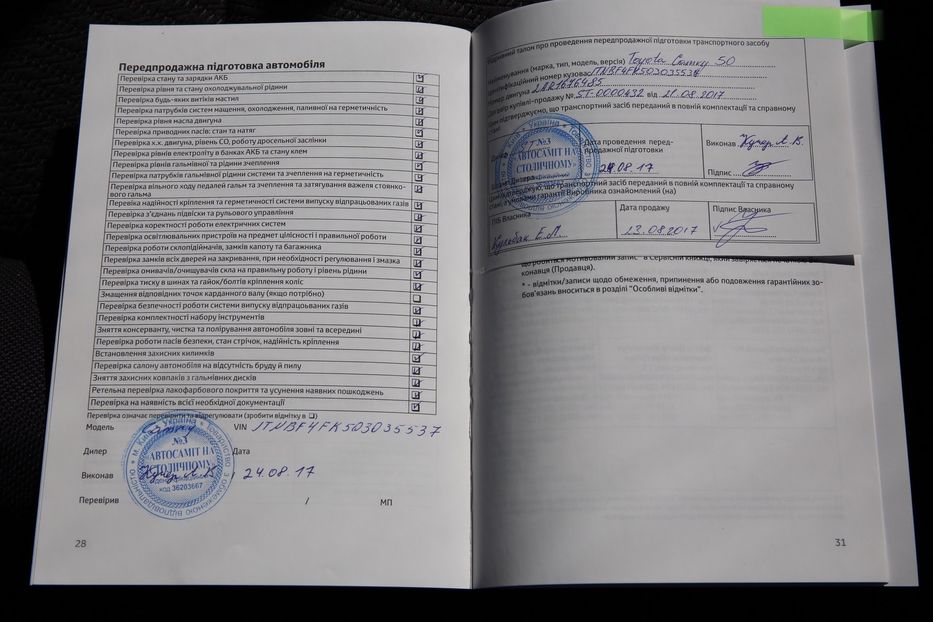 Передпродажна підготовка автомобіля
Перевірка стану та зарядки АКБ
Перевірка рівня та стану охолоджувальної рідини
Перевірка будь-яких витіків мастил
Перевірка патрубків систем мащення, охолодження, паливної на герметичність
Перевірка рівня масла двигуна
Перевірка приводних пасів: стан та натяг
Перевірка х.х. двигуна, рівень СО, роботу дросельної заслінки
Перевірка рівню електроліту в банках АКБ та стану клем
Перевірка рівнів гальмівної та рідини зчеплення
Перевірка патрубків гальмівної рідини системи та зчеплення на герметичність
Перевірка вільного ходу педалей гальм та зчеплення та затягування важеля стоянко-
вого гальма
Перевіка надійності кріплення та герметичності системи випуску відпрацьованих газів
Перевірка з'єднань підвіски та рульового управління
Перевірка коректності роботи електричних систем
Перевірка освітлювальних пристроїв на предмет цілісності і правильної роботи
Перевірка роботи склопідіймачів, замків капоту та багажника
Перевірка замків всіх дверей на закривання, при необхідності регулювання і змазка
Перевірка омивачів/очищувачів скла на правильну роботу і рівень рідини
Перевірка тиску в шинах та гайок/болтів кріплення коліс
Змащення відповідних точок карданного валу (якщо потрібно)
Перевірка безпечності роботи системи випуску відпрацьованих газів
Перевірка комплектності набору інструментів
Зняття консерванту, чистка та полірування автомобіля зовні та всередині
Перевірка роботи пасів безпеки, стан стрічок, надійність кріплення
Встановлення захисних килимків
Перевірка салону автомобіля на відсутність бруду й пилу
Зняття захисних ковпаків з гальмівних дисків
Ретельна перевірка лакофарбового покриття та усунення наявних пошкоджень
Перевірка на наявність всієї необхідної документації
Перевірка означає перевірити та відрегулювати (зробити відмітку в ❑)
Модель Camry VIN JTNBF4FK503035537
Дилер Дата
№3
АВТОСАМІТ НА
СТОЛИЧНОМУ
код 36203667
Виконав Кучер Л В 24.08.17
Перевірив / МП
28
талон про проведення передпродажної підготовки транспортного засобу
Найменування (марка, тип, модель, версія) Toyota Camry 50
номер кузова JTNBF4FK503035537
номер двигуна 2AR1676485
купівлі-продажу № ST-0000432 від 21.08.2017
підтверджуємо, що транспортний засіб переданий в повній комплектації та справному
стані
№3
АВТОСАМІТ НА
СТОЛИЧНОМУ
Дата проведення перед-
продажної підготовки
24.08.17
Виконав Кучер Л В.
Підпис
що транспортний засіб переданий в повній комплектації та справному
умовами гарантії Виробника ознайомлений (на)
ПІБ Власника
Дата продажу
23.08.2017
Підпис Власника
що робиться мотивований запис в Сервісній книжці,
конавця (Продавця).
* – відмітки/записи щодо обмеження, припинення або подовження гарантійних зо-
бов'язань вноситься в розділі "Особливі відмітки".
31